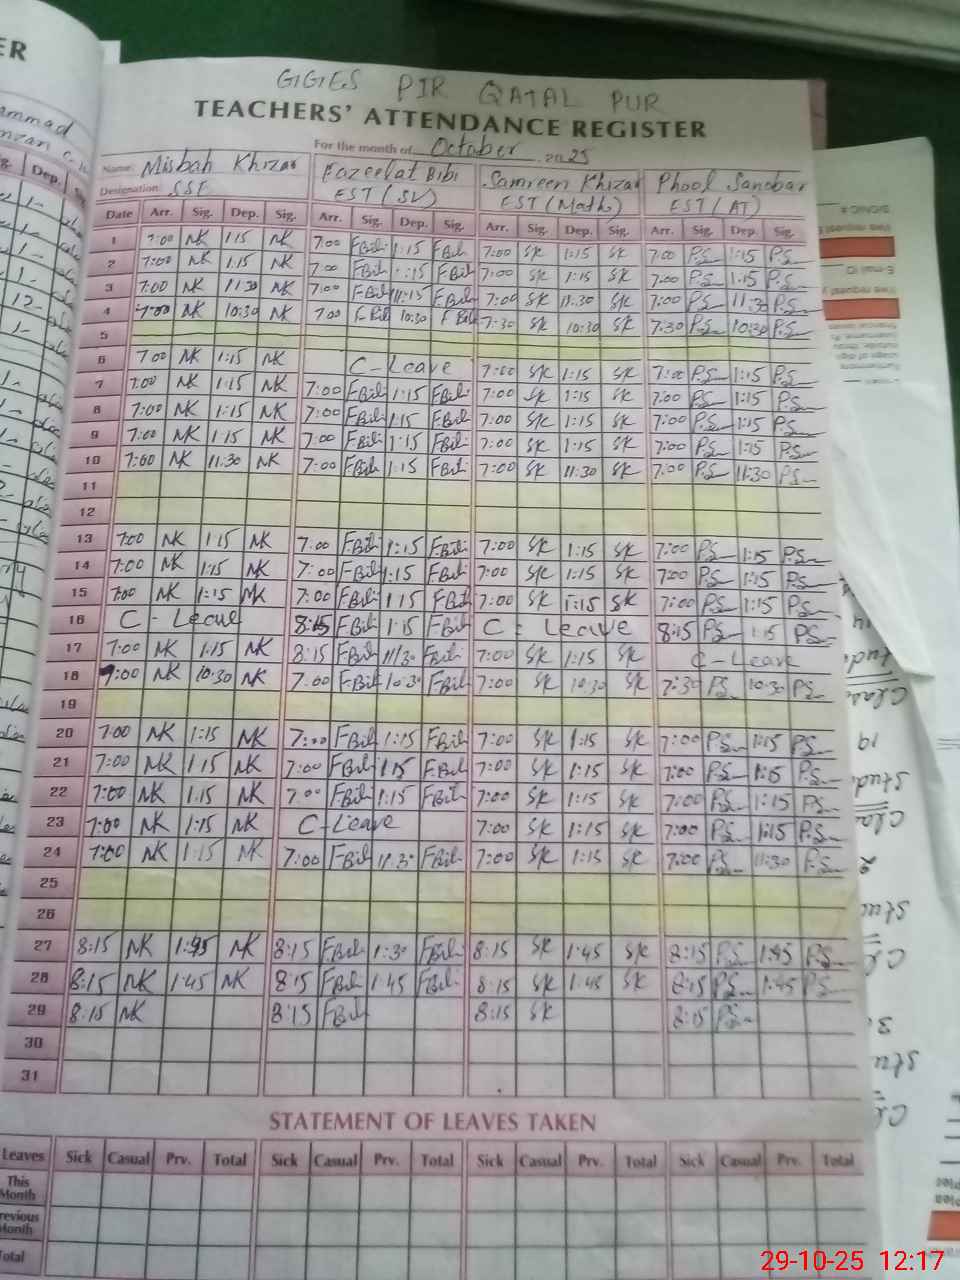 GGES PIR QATAL PUR
TEACHERS' ATTENDANCE REGISTER
For the month of October 2025
Name: Misbah Khizar Fazeelat Bibi Samreen Khizar Phool Sanobar
Designation: SSE EST (SV) EST (Math) EST (AT)
Date Arr. Sig. Dep. Sig. Arr. Sig. Dep. Sig. Arr. Sig. Dep. Sig. Arr. Sig. Dep. Sig.
1 7:00 MK 1:15 MK 7:00 FBibi 1:15 FBibi 7:00 SK 1:15 SK 7:00 P.S 1:15 P.S
2 7:00 MK 1:15 MK 7:00 FBibi 1:15 FBibi 7:00 SK 1:15 SK 7:00 P.S 1:15 P.S
3 7:00 MK 11:30 MK 7:00 FBibi 11:15 FBibi 7:00 SK 11:30 SK 7:00 P.S 11:30 P.S
4 7:00 MK 10:30 MK 7:00 FBibi 10:30 FBibi 7:30 SK 10:30 SK 7:30 P.S 10:30 P.S
5
6 7:00 MK 1:15 MK C-Leave 7:00 SK 1:15 SK 7:00 P.S 1:15 P.S
7 7:00 MK 1:15 MK 7:00 FBibi 1:15 FBibi 7:00 SK 1:15 SK 7:00 P.S 1:15 P.S
8 7:00 MK 1:15 MK 7:00 FBibi 1:15 FBibi 7:00 SK 1:15 SK 7:00 P.S 1:15 P.S
9 7:00 MK 1:15 MK 7:00 FBibi 1:15 FBibi 7:00 SK 1:15 SK 7:00 P.S 1:15 P.S
10 7:00 MK 11:30 MK 7:00 FBibi 1:15 FBibi 7:00 SK 11:30 SK 7:00 P.S 11:30 P.S
11
12
13 7:00 MK 1:15 MK 7:00 FBibi 1:15 FBibi 7:00 SK 1:15 SK 7:00 P.S 1:15 P.S
14 7:00 MK 1:15 MK 7:00 FBibi 1:15 FBibi 7:00 SK 1:15 SK 7:00 P.S 1:15 P.S
15 7:00 MK 1:15 MK 7:00 FBibi 1:15 FBibi 7:00 SK 1:15 SK 7:00 P.S 1:15 P.S
16 C-Leave 8:15 FBibi 1:15 FBibi C-Leave 8:15 P.S 1:15 P.S
17 7:00 MK 1:15 MK 8:15 FBibi 11:30 FBibi 7:00 SK 1:15 SK C-Leave
18 7:00 MK 10:30 MK 7:00 FBibi 10:30 FBibi 7:00 SK 10:30 SK 7:30 P.S 10:30 P.S
19
20 7:00 MK 1:15 MK 7:00 FBibi 1:15 FBibi 7:00 SK 1:15 SK 7:00 P.S 1:15 P.S
21 7:00 MK 1:15 MK 7:00 FBibi 1:15 FBibi 7:00 SK 1:15 SK 7:00 P.S 1:15 P.S
22 7:00 MK 1:15 MK 7:00 FBibi 1:15 FBibi 7:00 SK 1:15 SK 7:00 P.S 1:15 P.S
23 7:00 MK 1:15 MK C-Leave 7:00 SK 1:15 SK 7:00 P.S 1:15 P.S
24 7:00 MK 1:15 MK 7:00 FBibi 11:30 FBibi 7:00 SK 1:15 SK 7:00 P.S 11:30 P.S
25
26
27 8:15 MK 1:45 MK 8:15 FBibi 1:30 FBibi 8:15 SK 1:45 SK 8:15 P.S 1:45 P.S
28 8:15 MK 1:45 MK 8:15 FBibi 1:45 FBibi 8:15 SK 1:45 SK 8:15 P.S 1:45 P.S
29 8:15 MK 8:15 FBibi 8:15 SK 8:15 P.S
30
31
STATEMENT OF LEAVES TAKEN
Leaves Sick Casual Prv. Total Sick Casual Prv. Total Sick Casual Prv. Total Sick Casual Prv. Total
This Month
Previous Month
Total
29-10-25 12:17